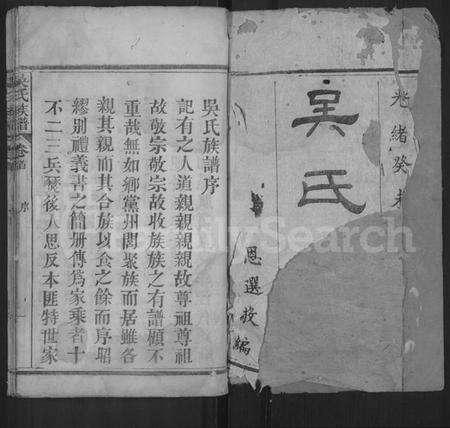 光緒癸未
吳氏
恩選敎編
吳氏族譜序
記有之人道親親親親故尊祖尊祖
故敬宗敬宗故收族族之有譜顧不
重哉無如鄉黨州閭聚族而居雖各
親其親而其合族以食之餘而序昭
繆別禮義書之簡册傳為家乘者十
不二三兵燹後人思反本匪特世家
吳氏族譜 卷首 序
FamilySearch